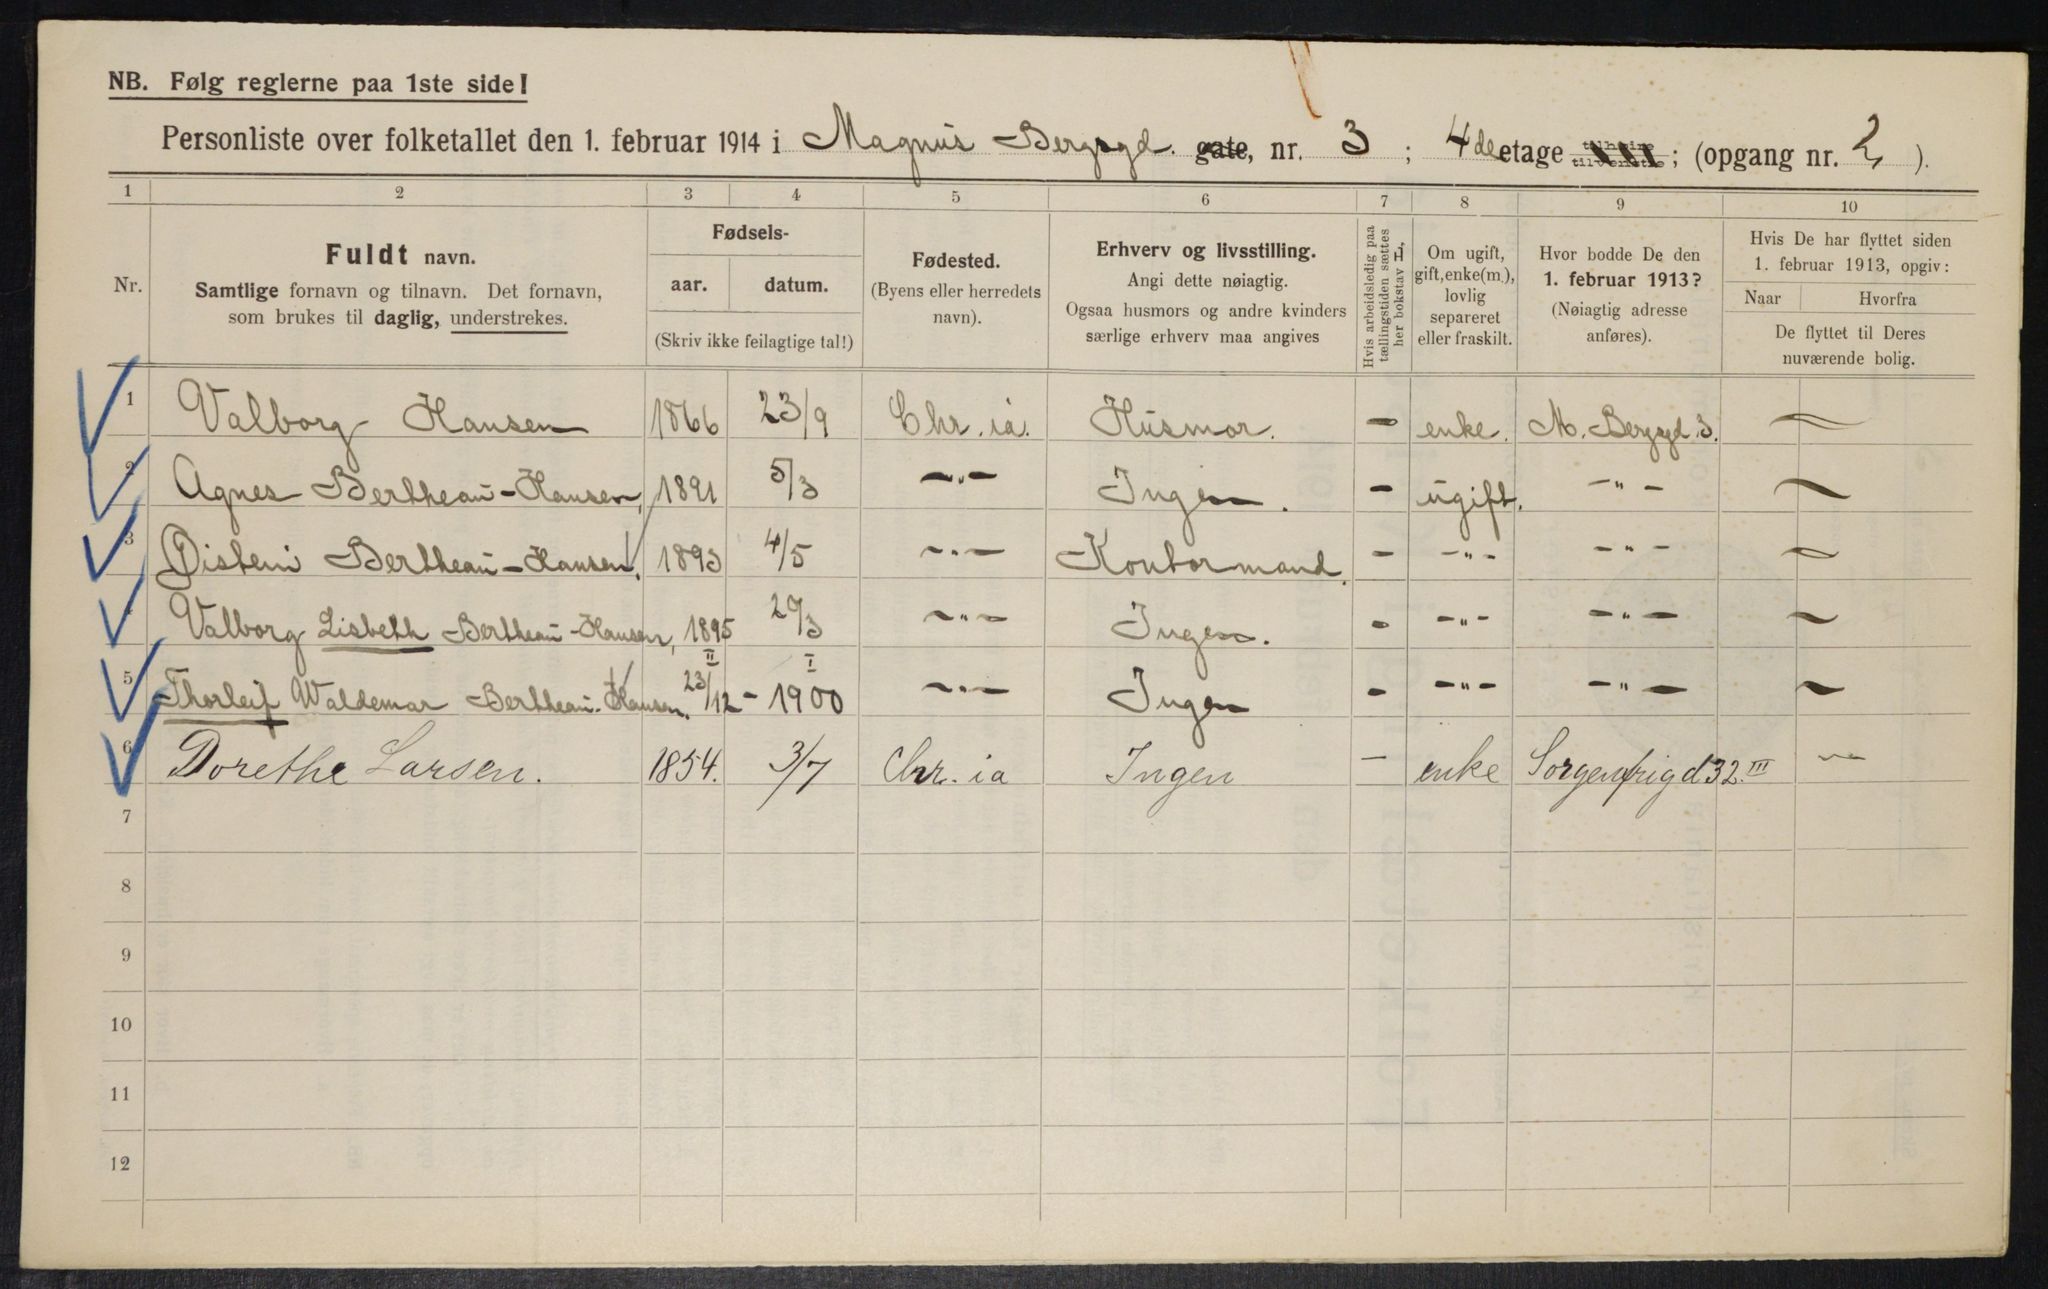 NB. Følg reglerne paa 1ste side!
Personliste over folketallet den 1. februar 1914 i Magnus Bergsgd. gate, nr. 3 ; 4de etage ; (opgang nr. 2 ).
1 2 3 4 5 6 7 8 9 10
Nr.
Fuldt navn.
Samtlige fornavn og tilnavn. Det fornavn,
som brukes til daglig, understrekes.
Fødsels-
aar. datum.
(Skriv ikke feilagtige tal!)
Fødested.
(Byens eller herredets
navn).
Erhverv og livsstilling.
Angi dette nøiagtig.
Ogsaa husmors og andre kvinders
særlige erhverv maa angives
Hvis arbeidsledig paa
tællingstiden sættes
her bokstav L,
Om ugift,
gift, enke(m.),
lovlig
separeret
eller fraskilt.
Hvor bodde De den
1. februar 1913?
(Nøiagtig adresse
anføres).
Hvis De har flyttet siden
1. februar 1913, opgiv:
Naar Hvorfra
De flyttet til Deres
nuværende bolig.
1 Valborg Hansen 1866 23/9 Chr.ia. Husmor. - enke. M. Bergsgd. 3. -
2 Agnes Bertheau-Hansen, 1891 5/3 -"- Ingen. - ugift. -"- -
3 Øistein Bertheau-Hansen, 1893 4/5 -"- Kontormand. - -"- -"- -
4 Valborg Lisbeth Bertheau-Hansen, 1895 /3 -"- Ingen. - -"- -"- -
II I
5 Thorleif Waldemar Bertheau-Hansen. 23/12 - 1900 -"- Ingen - -"- -"- -
6 Dorethe Larsen. 1854. 3/7 Chr.ia Ingen - enke Sorgenfrigd 32 III -
7
8
9
10
11
12